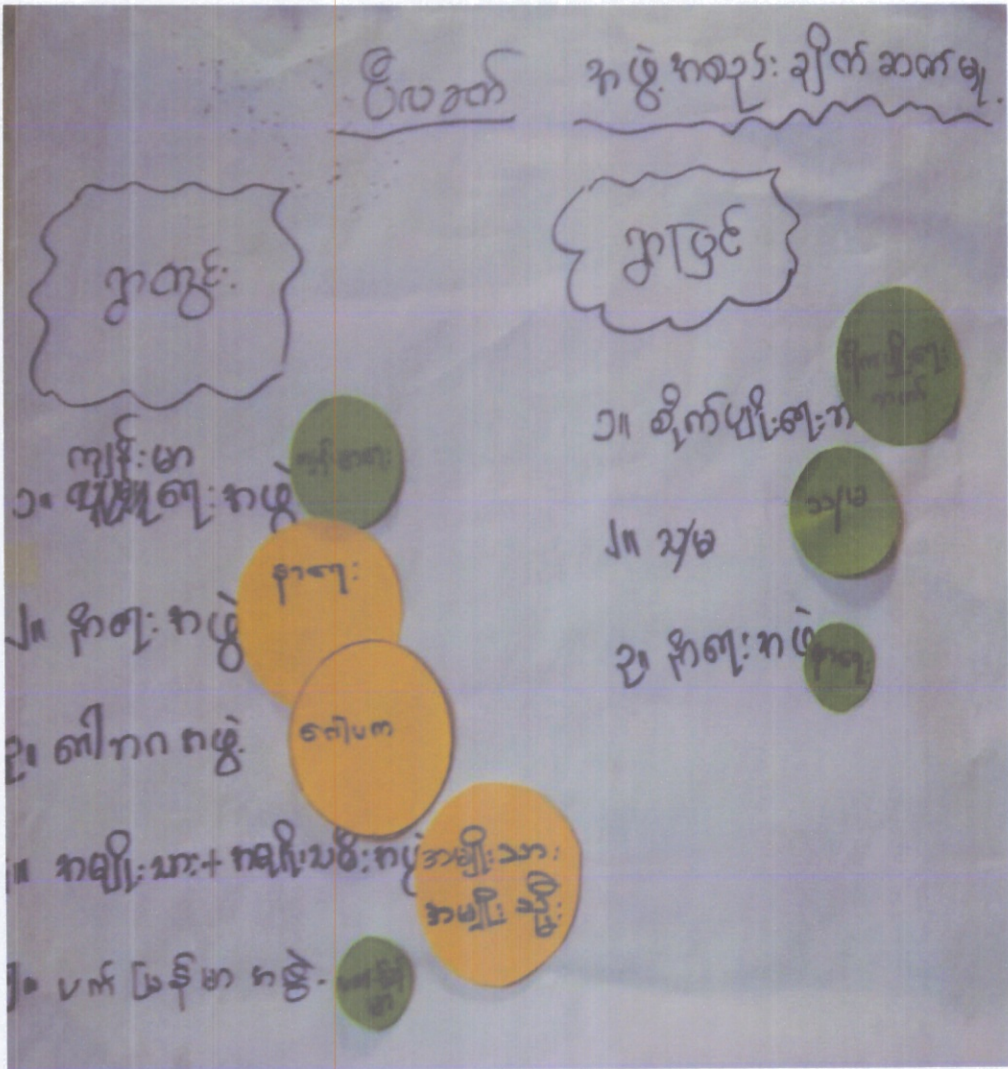 ပီလခတ် အဖွဲ့အစည်းချိတ်ဆက်မှု
ရွာတွင်း
ကျန်းမာ
၁။ ရေးအဖွဲ့
ကျန်းမာရေး
၂။ နာရေးအဖွဲ့
နာရေး
၃။ ဂေါပကအဖွဲ့
ဂေါပက
၄။ အမျိုးသား+အမျိုးသမီးအဖွဲ့
အမျိုးသား
အမျိုးသမီး
၅။ ပက်မြန်မာအဖွဲ့
ရွာပြင်
၁။ စိုက်ပျိုးရေး
စိုက်ပျိုးရေး
၂။ သ/မ
သ/မ
၃။ နာရေးအဖွဲ့
နာရေး